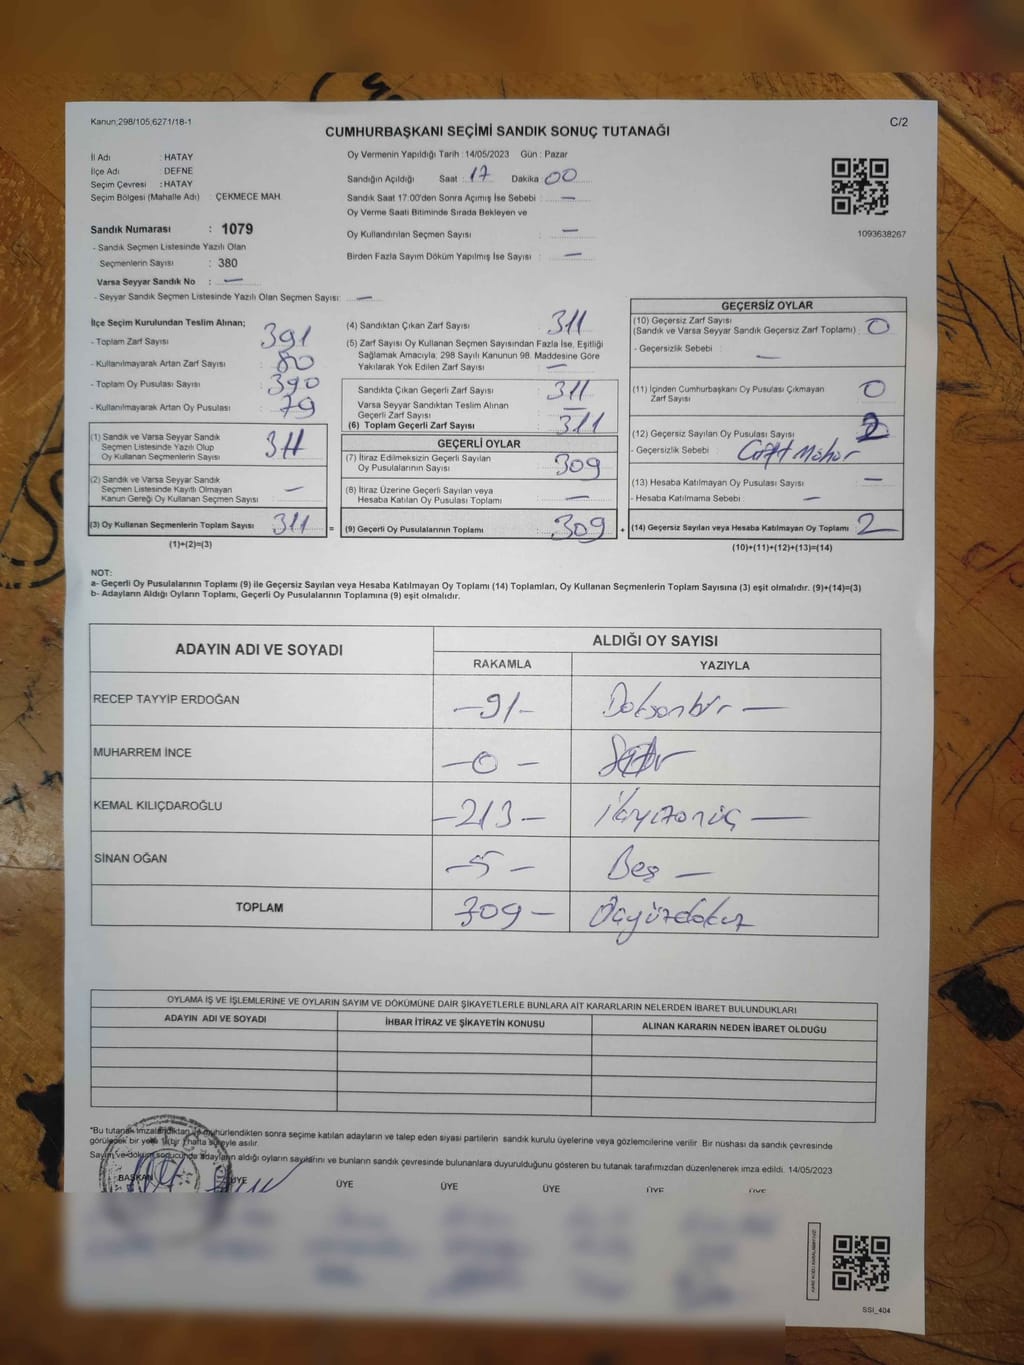 Kanun;298/105,6271/18-1
C/2
CUMHURBAŞKANI SEÇİMİ SANDIK SONUÇ TUTANAĞI
İl Adı : HATAY
İlçe Adı : DEFNE
Seçim Çevresi : HATAY
Seçim Bölgesi (Mahalle Adı) ÇEKMECE MAH.
Sandık Numarası : 1079
- Sandık Seçmen Listesinde Yazılı Olan
Seçmenlerin Sayısı : 380
Varsa Seyyar Sandık No : —
- Seyyar Sandık Seçmen Listesinde Yazılı Olan Seçmen Sayısı: —
Oy Vermenin Yapıldığı Tarih : 14/05/2023 Gün : Pazar
Sandığın Açıldığı Saat : 17 Dakika : 00
Sandık Saat 17:00'den Sonra Açımış İse Sebebi : —
Oy Verme Saati Bitiminde Sırada Bekleyen ve
Oy Kullandırılan Seçmen Sayısı : —
Birden Fazla Sayım Döküm Yapılmış İse Sayısı : —
1093638267
İlçe Seçim Kurulundan Teslim Alınan;
- Toplam Zarf Sayısı : 391
- Kullanılmayarak Artan Zarf Sayısı : 80
- Toplam Oy Pusulası Sayısı : 390
- Kullanılmayarak Artan Oy Pusulası : 79
(1) Sandık ve Varsa Seyyar Sandık
Seçmen Listesinde Yazılı Olup
Oy Kullanan Seçmenlerin Sayısı : 311
(2) Sandık ve Varsa Seyyar Sandık
Seçmen Listesinde Kayıtlı Olmayan
Kanun Gereği Oy Kullanan Seçmen Sayısı : —
(3) Oy Kullanan Seçmenlerin Toplam Sayısı : 311 =
(1)+(2)=(3)
(4) Sandıktan Çıkan Zarf Sayısı : 311
(5) Zarf Sayısı Oy Kullanan Seçmen Sayısından Fazla İse, Eşitliği
Sağlamak Amacıyla, 298 Sayılı Kanunun 98. Maddesine Göre
Yakılarak Yok Edilen Zarf Sayısı : —
Sandıkta Çıkan Geçerli Zarf Sayısı : 311
Varsa Seyyar Sandıktan Teslim Alınan
Geçerli Zarf Sayısı : —
(6) Toplam Geçerli Zarf Sayısı : 311
GEÇERLİ OYLAR
(7) İtiraz Edilmeksizin Geçerli Sayılan
Oy Pusulalarının Sayısı : 309
(8) İtiraz Üzerine Geçerli Sayılan veya
Hesaba Katılan Oy Pusulaları Toplamı : —
(9) Geçerli Oy Pusulalarının Toplamı : 309 +
GEÇERSİZ OYLAR
(10) Geçersiz Zarf Sayısı
(Sandık ve Varsa Seyyar Sandık Geçersiz Zarf Toplamı) : 0
- Geçersizlik Sebebi : —
(11) İçinden Cumhurbaşkanı Oy Pusulası Çıkmayan
Zarf Sayısı : 0
(12) Geçersiz Sayılan Oy Pusulası Sayısı : 2
- Geçersizlik Sebebi : Çift Mühür
(13) Hesaba Katılmayan Oy Pusulası Sayısı : —
- Hesaba Katılmama Sebebi : —
(14) Geçersiz Sayılan veya Hesaba Katılmayan Oy Toplamı : 2
(10)+(11)+(12)+(13)=(14)
NOT:
a- Geçerli Oy Pusulalarının Toplamı (9) ile Geçersiz Sayılan veya Hesaba Katılmayan Oy Toplamı (14) Toplamları, Oy Kullanan Seçmenlerin Toplam Sayısına (3) eşit olmalıdır. (9)+(14)=(3)
b- Adayların Aldığı Oyların Toplamı, Geçerli Oy Pusulalarının Toplamına (9) eşit olmalıdır.
ADAYIN ADI VE SOYADI
ALDIĞI OY SAYISI
RAKAMLA YAZIYLA
RECEP TAYYİP ERDOĞAN -91- Doksanbir —
MUHARREM İNCE -0- Sıfır
KEMAL KILIÇDAROĞLU -213- İkiyüzonüç —
SİNAN OĞAN -5- Beş —
TOPLAM 309- Üçyüzdokuz
OYLAMA İŞ VE İŞLEMLERİNE VE OYLARIN SAYIM VE DÖKÜMÜNE DAİR ŞİKAYETLERLE BUNLARA AİT KARARLARIN NELERDEN İBARET BULUNDUKLARI
ADAYIN ADI VE SOYADI İHBAR İTİRAZ VE ŞİKAYETİN KONUSU ALINAN KARARIN NEDEN İBARET OLDUĞU
*Bu tutanak imzalandıktan ve mühürlendikten sonra seçime katılan adayların ve talep eden siyasi partilerin sandık kurulu üyelerine veya gözlemcilerine verilir. Bir nüshası da sandık çevresinde
görülecek bir yere 1 (bir) hafta süreyle asılır.
Sayım ve döküm sonucunda adayların aldığı oyların sayılarını ve bunların sandık çevresinde bulunanlara duyurulduğunu gösteren bu tutanak tarafımızdan düzenlenerek imza edildi. 14/05/2023
BAŞKAN ÜYE ÜYE ÜYE ÜYE ÜYE ÜYE
SSI_404